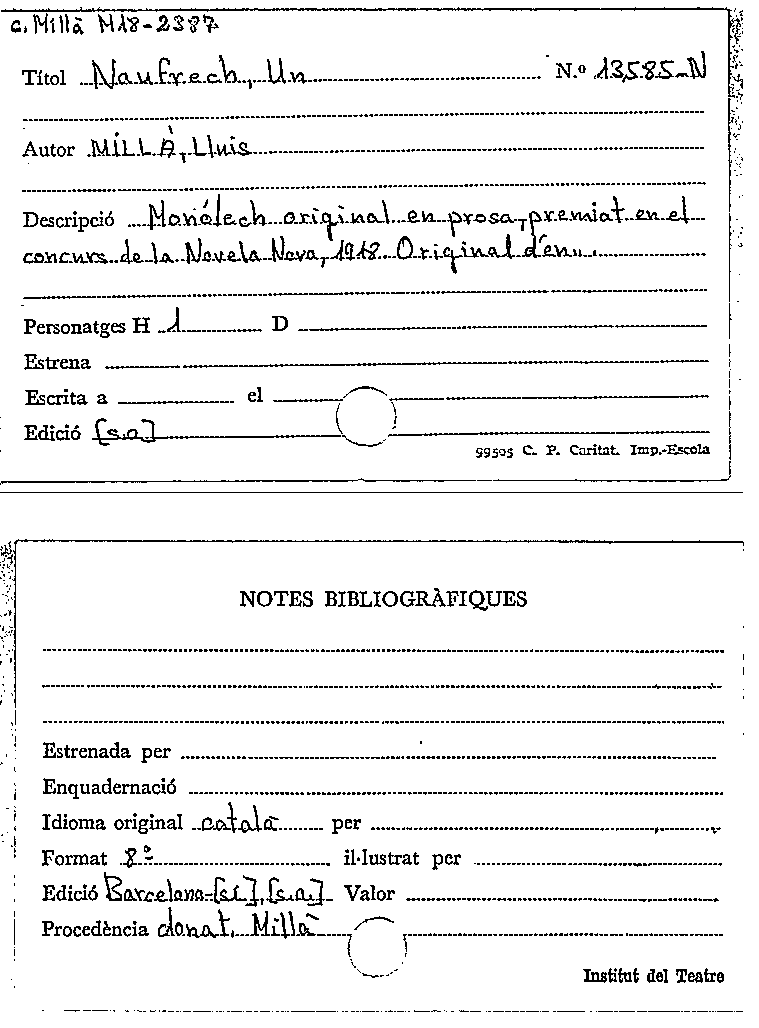 c. Millà M18-2387
Títol Naufrech, Un N.º 13585-N
Autor MILLÀ, Lluis
Descripció Monólech original en prosa, premiat en el
concurs de la Novela Nova, 1918. Original d'en...
Personatges H 1 D
Estrena
Escrita a el
Edició [s.a]
99505 C. P. Caritat. Imp.-Escola
NOTES BIBLIOGRÀFIQUES
Estrenada per
Enquadernació
Idioma original català per
Format 8º il·lustrat per
Edició Barcelona-[s.i.], [s.a.] Valor
Procedència donat. Millà
Institut del Teatre